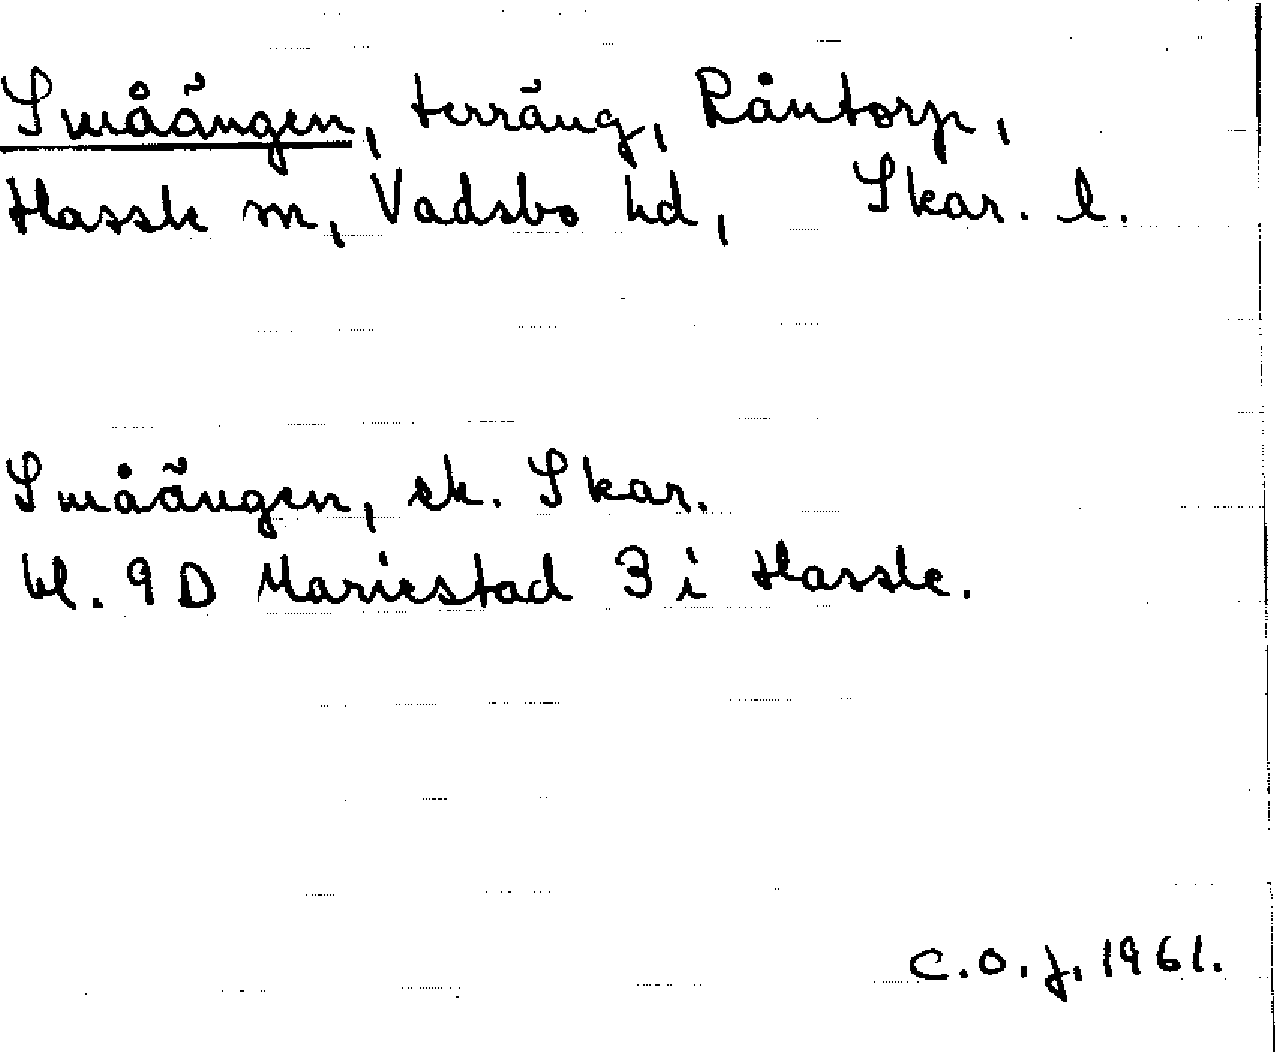 Småängen, terräng, Råntorp,
Hassle sn, Vadsbo hd, Skar. l.
Småängen, ek. Skar.
bl. 9D Mariestad 3 i Hassle.
C.O.J. 1961.